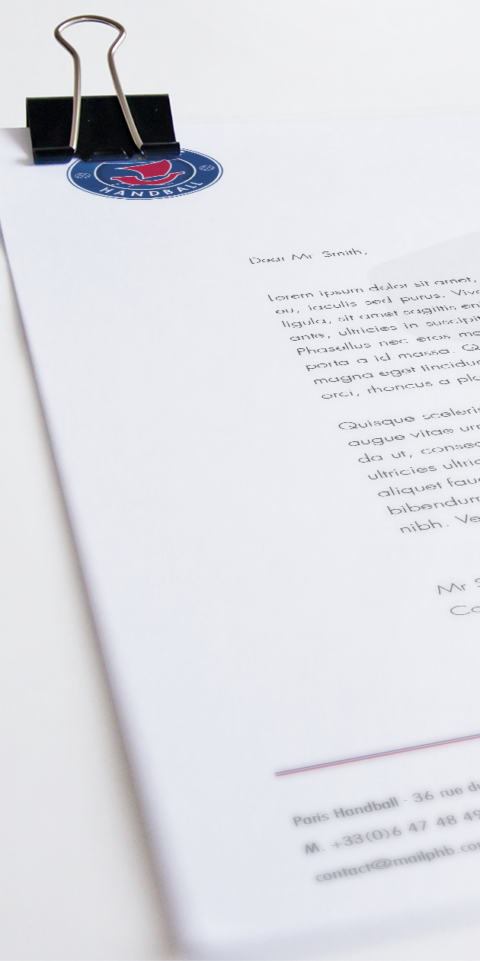 HANDBALL
Dear Mr Smith,
Lorem ipsum dolor sit amet,
eu, iaculis sed purus. Viv
ligula, sit amet sagittis en
ante, ultricies in suscipit
Phasellus nec eros
porta a id massa. Q
magna eget tincidun
orci, rhoncus a
Quisque sceleris
augue vitae ur
da ut, consec
ultricies ultri
aliquet fau
bibendum
nibh. Ve
Mr S
Co
Paris Handball - 36 rue du
M. +33(0)6 47 48 49
contact@mailphb.co